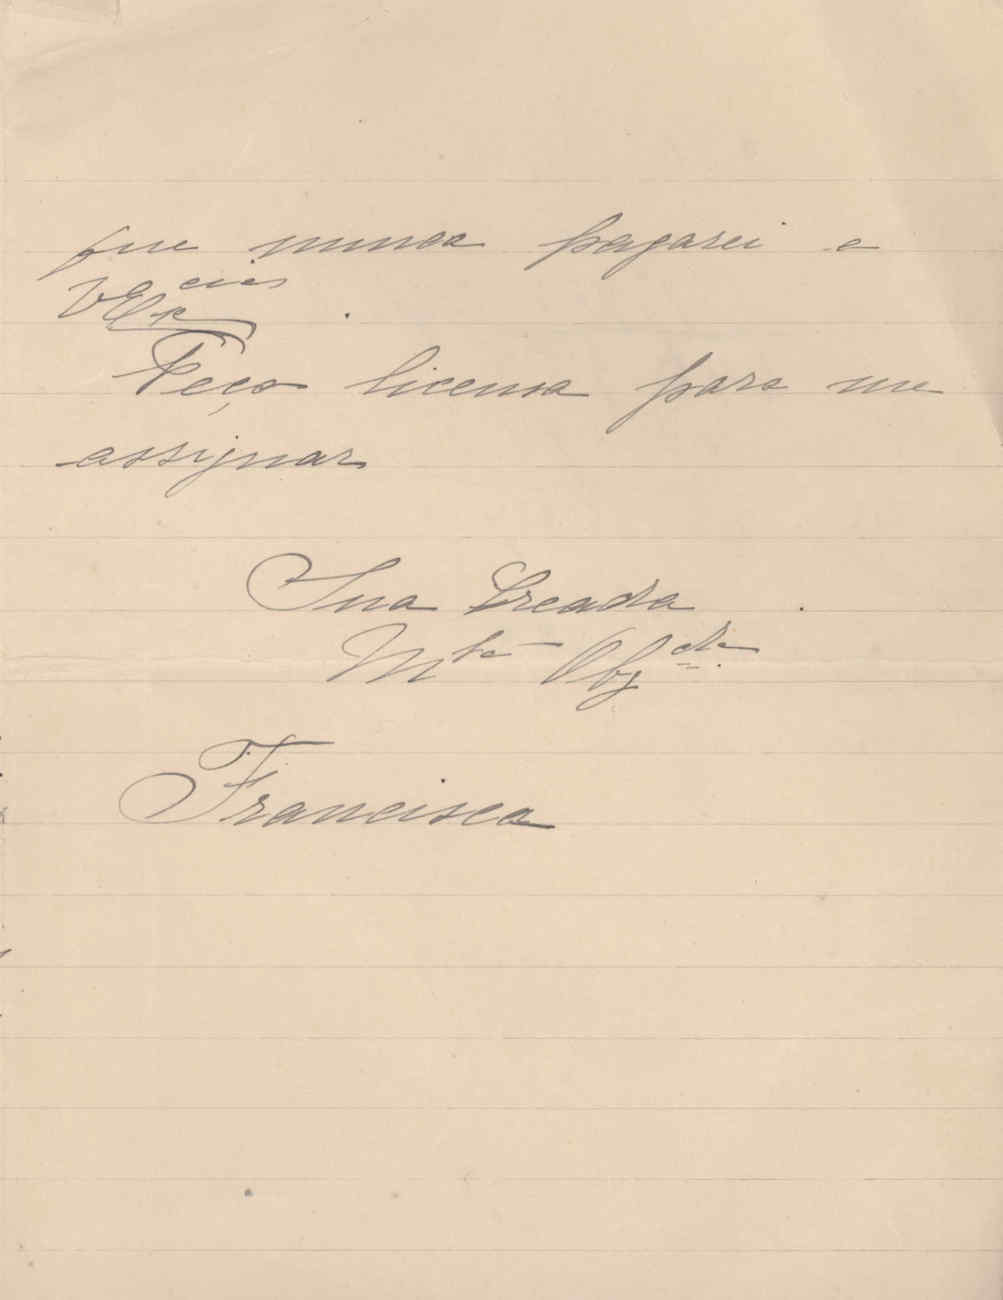 que nunca pagarei a
VEx.cias
Peço licensa para me
assignar
Sua Creada
Mto Obgda
Francisca